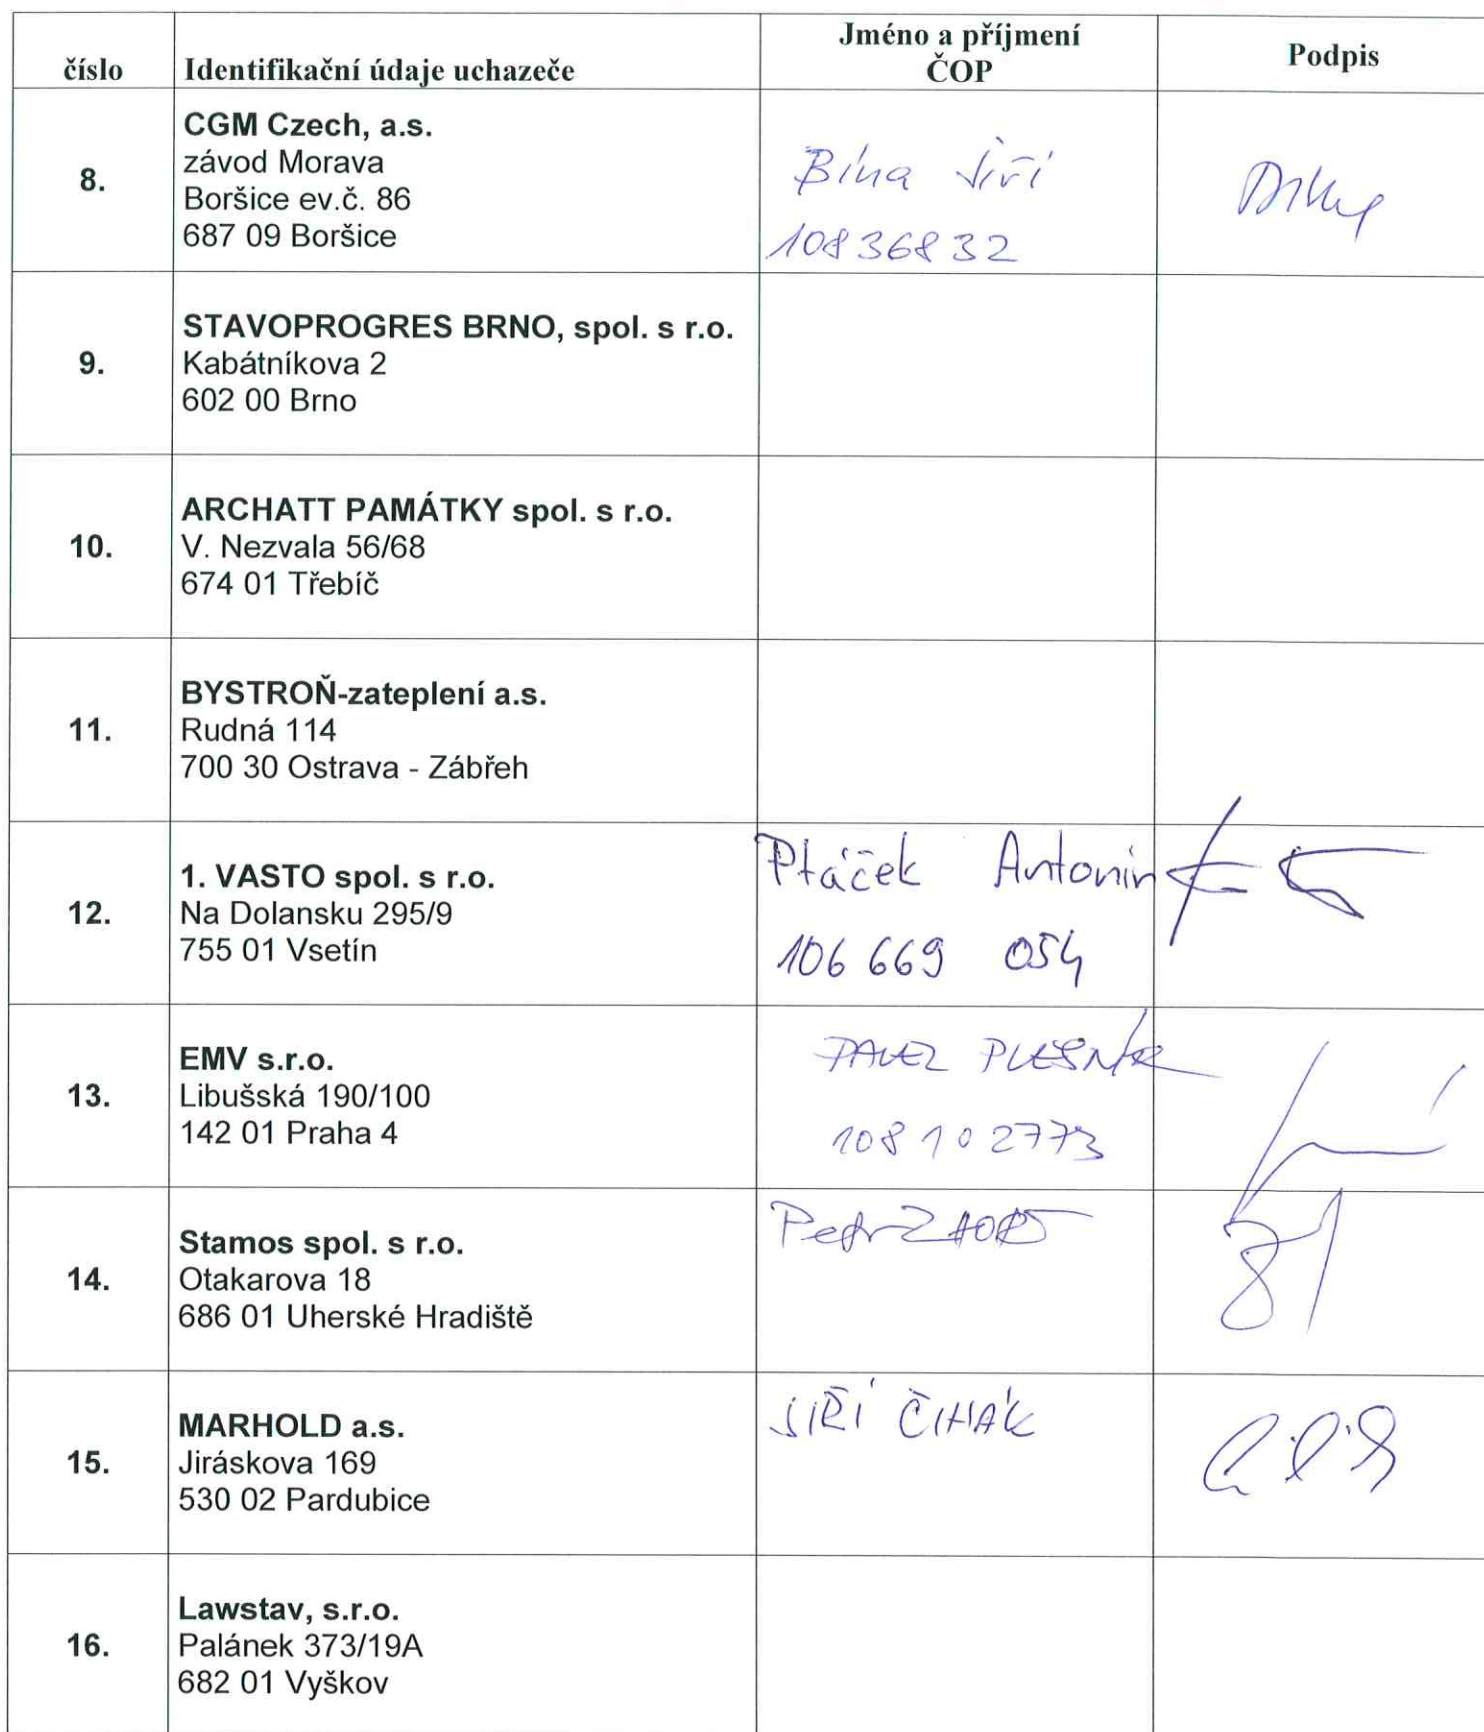 číslo
Identifikační údaje uchazeče
Jméno a příjmení
ČOP
Podpis
8.
CGM Czech, a.s.
závod Morava
Boršice ev.č. 86
687 09 Boršice
Bína Jiří
10836832
9.
STAVOPROGRES BRNO, spol. s r.o.
Kabátníkova 2
602 00 Brno
10.
ARCHATT PAMÁTKY spol. s r.o.
V. Nezvala 56/68
674 01 Třebíč
11.
BYSTROŇ-zateplení a.s.
Rudná 114
700 30 Ostrava - Zábřeh
12.
1. VASTO spol. s r.o.
Na Dolansku 295/9
755 01 Vsetín
Ptáček Antonín
106 669 054
13.
EMV s.r.o.
Libušská 190/100
142 01 Praha 4
PAVEL
108102773
14.
Stamos spol. s r.o.
Otakarova 18
686 01 Uherské Hradiště
Petr
15.
MARHOLD a.s.
Jiráskova 169
530 02 Pardubice
JIŘÍ ČIHÁK
16.
Lawstav, s.r.o.
Palánek 373/19A
682 01 Vyškov